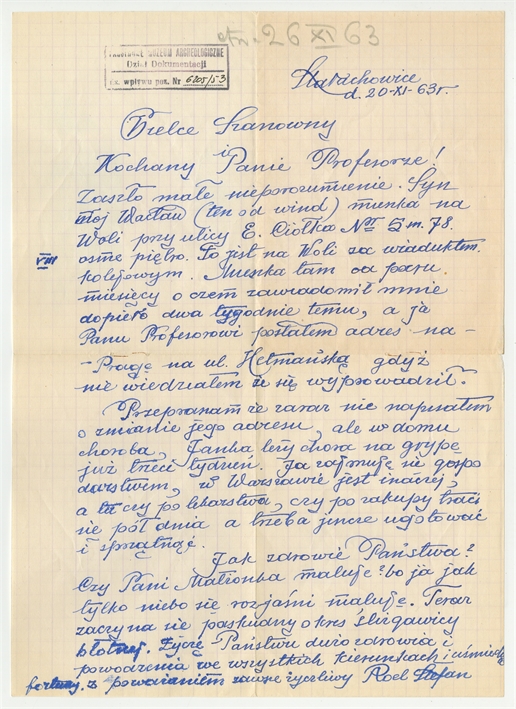 otrz. 26 XI 63
PAŃSTWOWE MUZEUM ARCHEOLOGICZNE
Dział Dokumentacji
Ks. wpływu pos. Nr 6205/53
Starachowice
d. 20-XI-63r.
Wielce Szanowny
i
Kochany Panie Profesorze!
Zaszło małe nieporozumienie. Syn
mój Wacław (ten od wind) mieszka na
Woli przy ulicy E. Ciołka Nr 5 m. 78.
VIII
osme piętro. To jest na Woli za wiaduktem
kolejowym. Mieszka tam od paru
miesięcy o czem zawiadomił mnie
dopiero dwa tygodnie temu, a ja
Panu Profesorowi posłałem adres na-
-Pragę na ul. Hetmańską gdyż
nie wiedziałem że się wyprowadził.
Przepraszam że zaraz nie napisałem
o zmianie jego adresu, ale w domu
choroba, Janka leży chora na grypę
już trzeci tydzień. Ja zajmuję się gospo
darstwem, w Warszawie jest inaczej,
a tu czy po lekarstwa, czy po zakupy traci
się pół dnia a trzeba jeszcze ugotować
i sprzątnąć.
Jak zdrowie Państwa?
Czy Pani Małżonka maluje? bo ja jak
tylko niebo się rozjaśni maluję. Teraz
zaczyna się paskudny okres ślizgawicy
błotnej. Życzę Państwu dużo zdrowia i
powodzenia we wszystkich kierunkach i uśmiechu
fortuny. z poważaniem zawsze życzliwy Roel Stefan